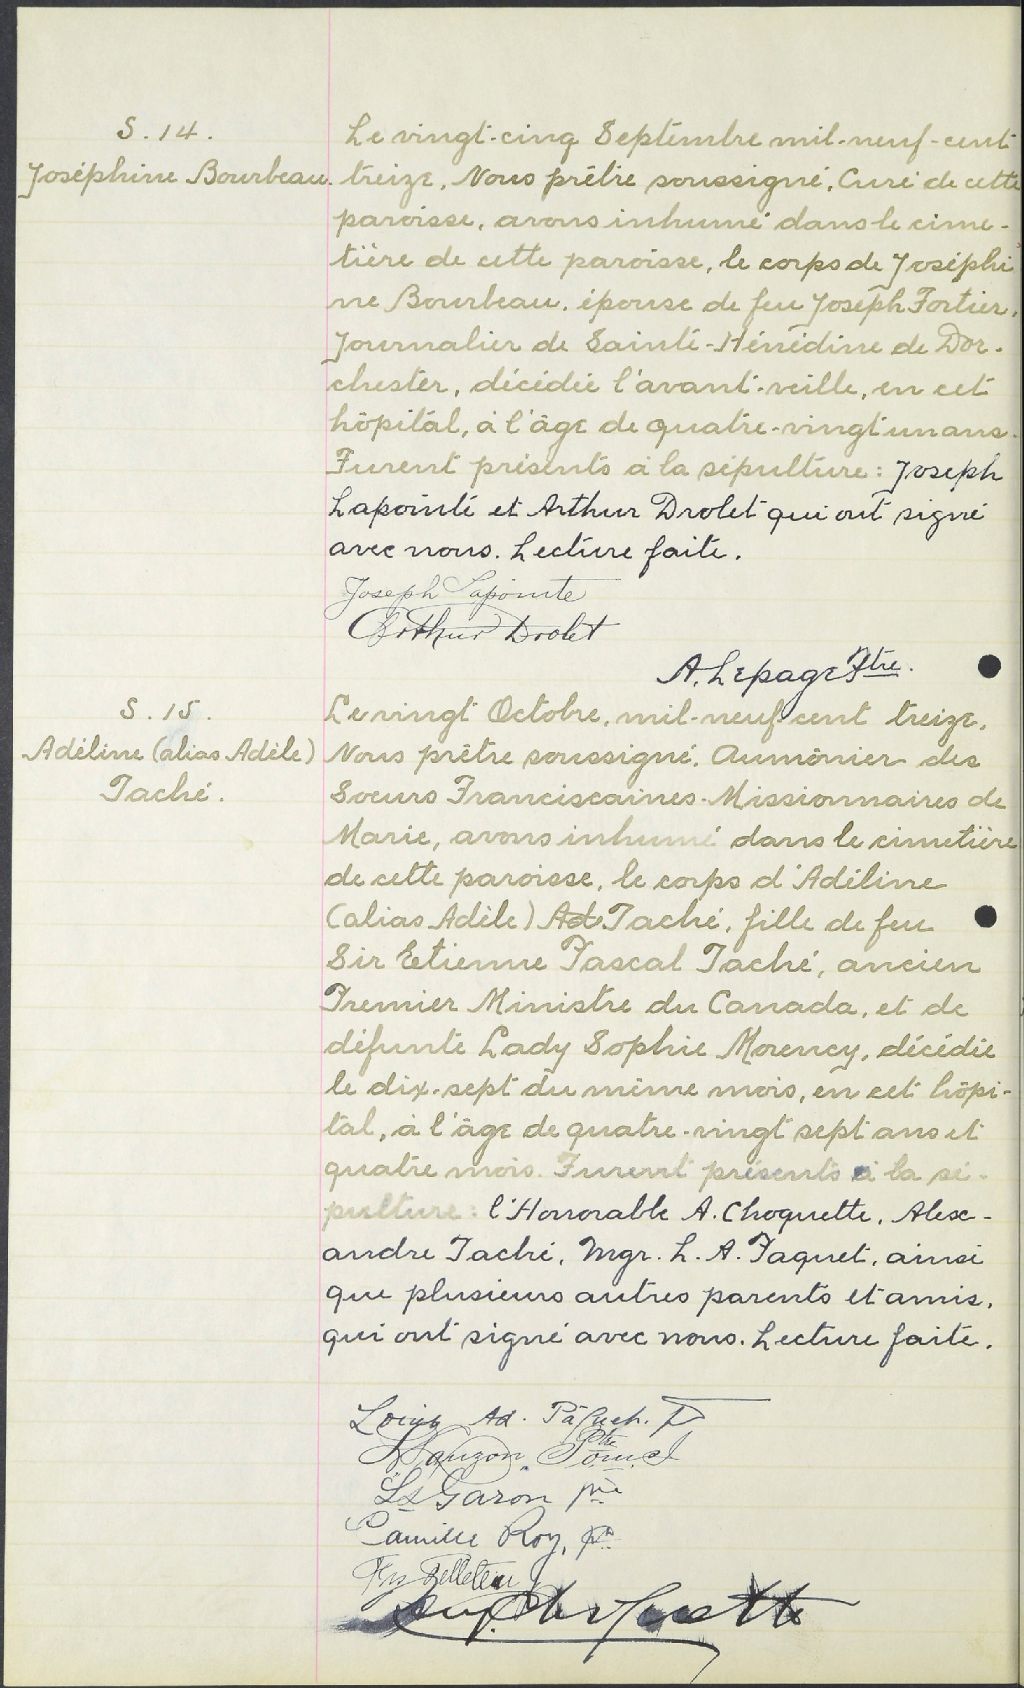 S. 14.
Joséphine Bourbeau.
Le vingt-cinq Septembre mil-neuf-cent
treize, Nous prêtre soussigné, Curé de cette
paroisse, avons inhumé dans le cime-
tière de cette paroisse, le corps de Joséphi
ne Bourbeau, épouse de feu Joseph Fortier,
Journalier de Sainte-Hénédine de Dor-
chester, décédée l'avant-veille, en cet
hôpital, à l'âge de quatre-vingt un ans.
Furent présents à la sépulture: Joseph
Lapointe et Arthur Drolet qui ont signé
avec nous. Lecture faite.
Joseph Lapointe
Arthur Drolet
A. Lepage Ptre.
S. 15.
Adéline (alias Adèle)
Taché.
Le vingt Octobre, mil-neuf-cent treize,
Nous prêtre soussigné, Aumônier des
Soeurs Franciscaines-Missionnaires de
Marie, avons inhumé dans le cimetière
de cette paroisse, le corps d'Adéline
(alias Adèle) Ad Taché, fille de feu
Sir Etienne Pascal Taché, ancien
Premier Ministre du Canada, et de
défunte Lady Sophie Morency, décédée
le dix-sept du même mois, en cet hôpi-
tal, à l'âge de quatre-vingt sept ans et
quatre mois. Furent présents à la sé-
pulture: l'Honorable A. Choquette, Alex-
andre Taché, Mgr. L. A. Paquet, ainsi
que plusieurs autres parents et amis,
qui ont signé avec nous. Lecture faite.
Ad. Pâquet. P
Ptre
Ls Garon ptre
Camille Roy, ptre
Pelletier
Choquette